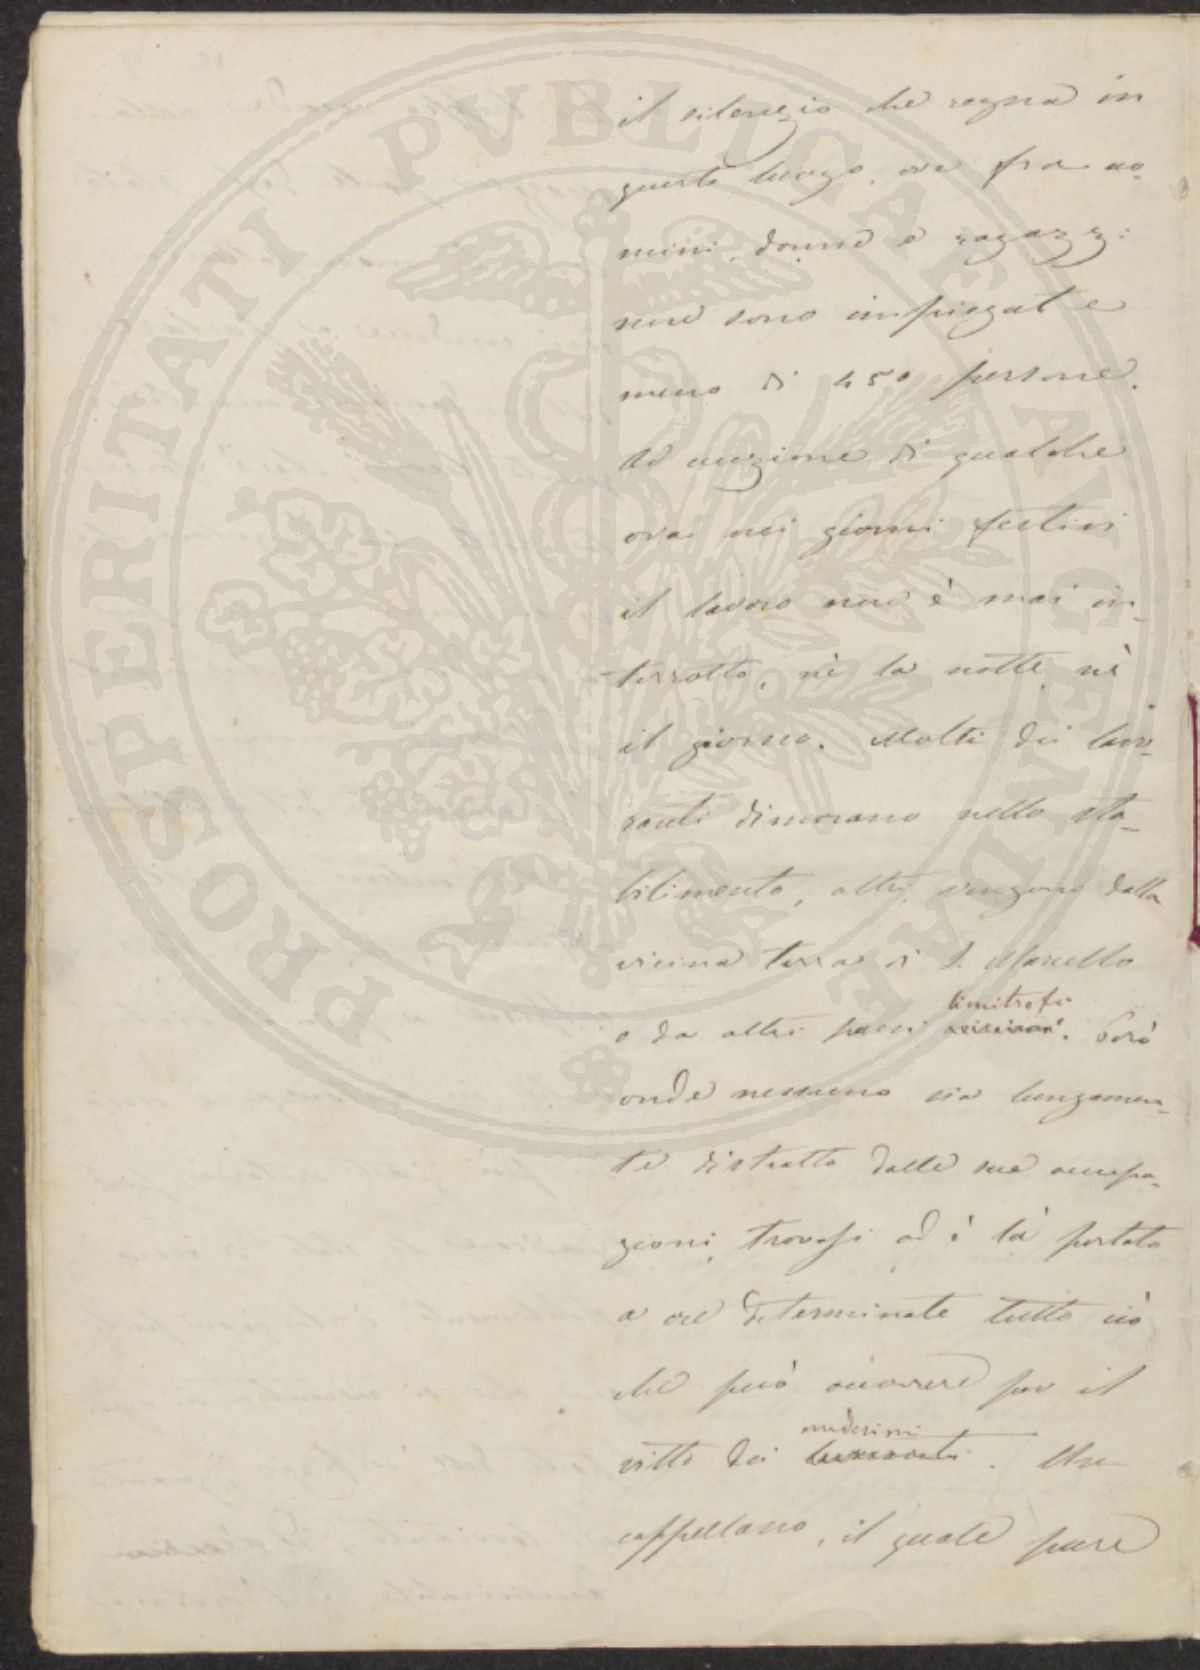 PROSPERITATI PVBLICAE AVGENDAE
il silenzio che regna in
questo luogo, ove fra uo-
mini, donne e ragazzi
non sono impiegate
meno di 450 persone.
Ad eccezione di qualche
ora nei giorni festivi
il lavoro non è mai in-
terrotto, nè la notte nè
il giorno. Molti dei lavo-
ranti dimorano nello sta-
bilimento, altri vengono dalla
vicina terra di S. Marcello
limitrofi
o da altri paesi vicinanti. Però
onde nessuno sia lungamen-
te distratto dalle sue occupa-
zioni, trovasi ed è là portato
a ore determinate tutto ciò
che può occorrere per il
medesimi
vitto dei lavoranti. Un
cappellano, il quale pure